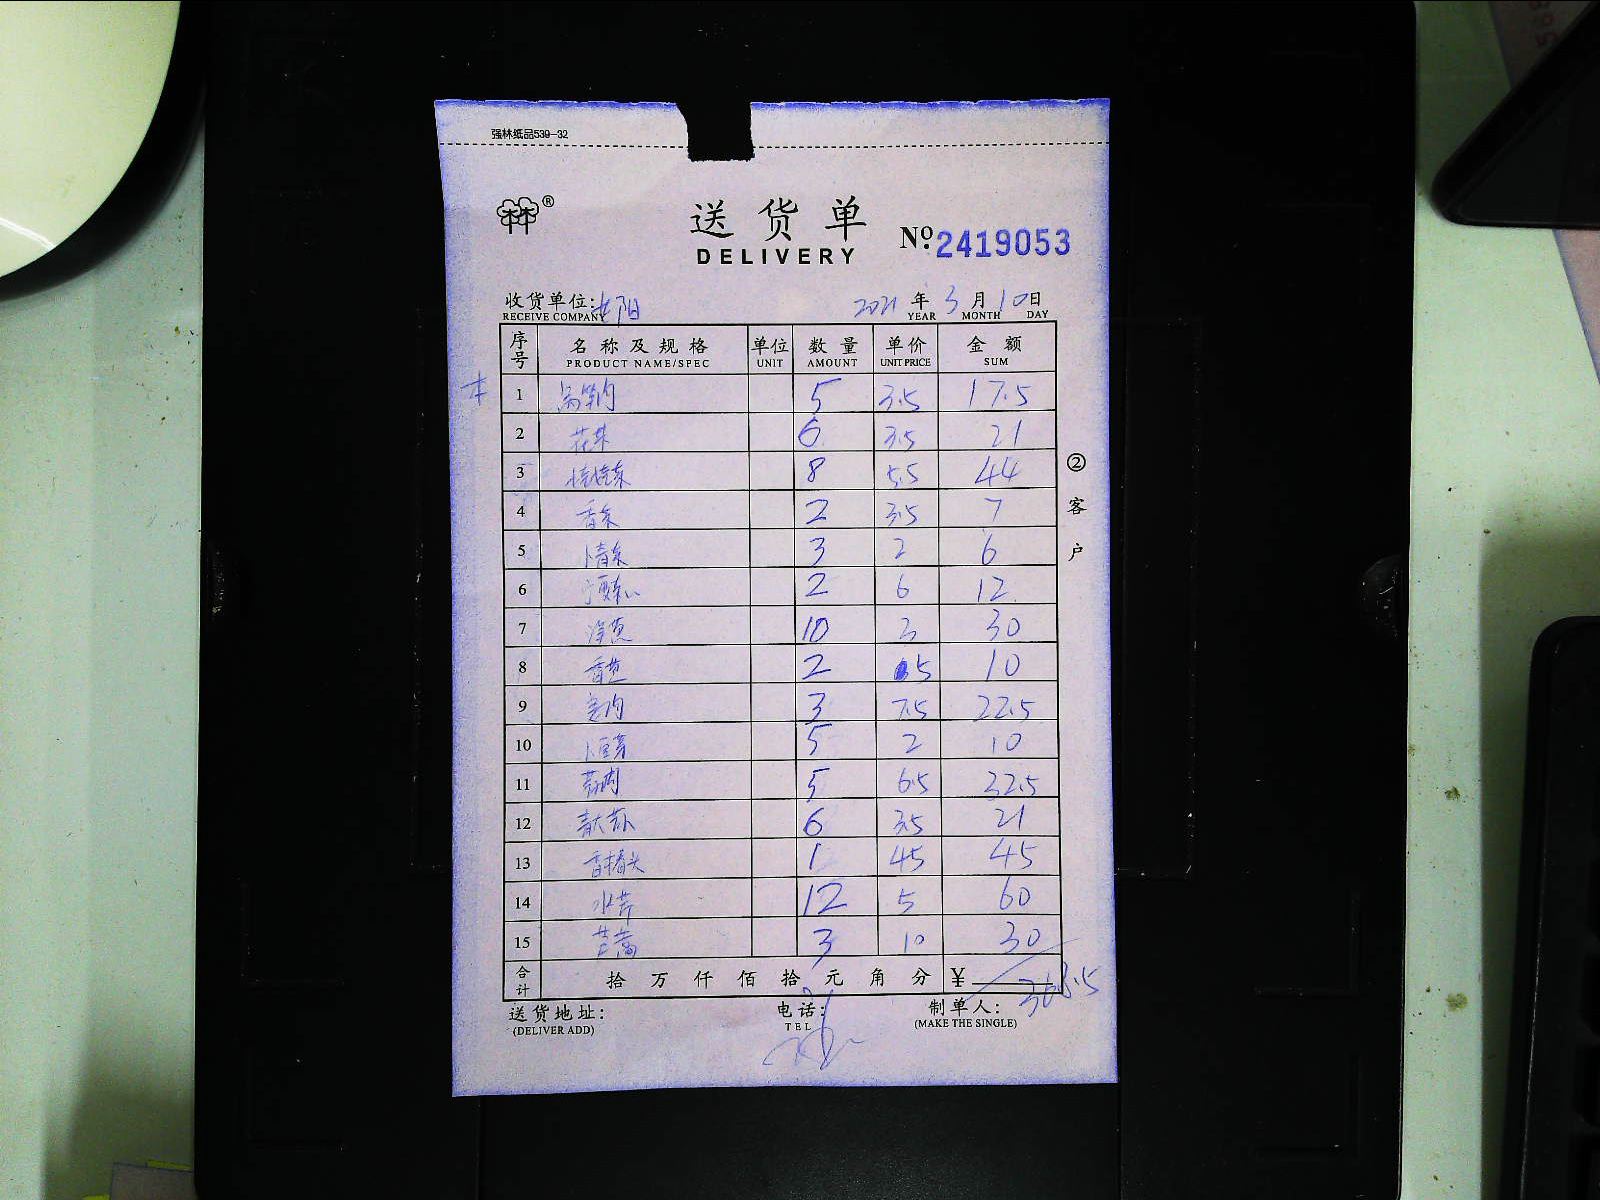 强林纸品530-32
林®
送货单
DELIVERY
№ 2419053
收货单位: 2021年3月10日
RECEIVE COMPANY YEAR MONTH DAY
序号 名称及规格 单位 数量 单价 金额
PRODUCT NAME/SPEC UNIT AMOUNT UNIT PRICE SUM
1 5 3.5 17.5
2 花菜 6 3.5 21
3 8 5.5 44
4 香菜 2 3.5 7
5 小青菜 3 2 6
6 2 6 12
7 洋葱 10 3 30
8 香芹 2 5 10
9 3 7.5 22.5
10 小豆芽 5 2 10
11 5 6.5 32.5
12 6 3.5 21
13 香椿头 1 45 45
14 水芹 12 5 60
15 3 10 30
合计 拾万仟佰拾元角分 ¥ 368.5
送货地址: 电话: 制单人:
(DELIVER ADD) TEL (MAKE THE SINGLE)
②客户